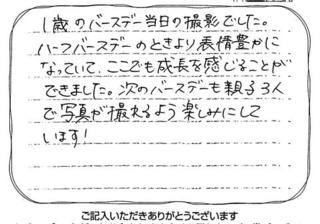 1歳のバースデー当日の撮影でした。
ハーフバースデーのときより表情豊かに
なっていて、ここでも成長を感じることが
できました。次のバースデーも親子3人
で写真が撮れるよう楽しみにして
います!
ご記入いただきありがとうございます